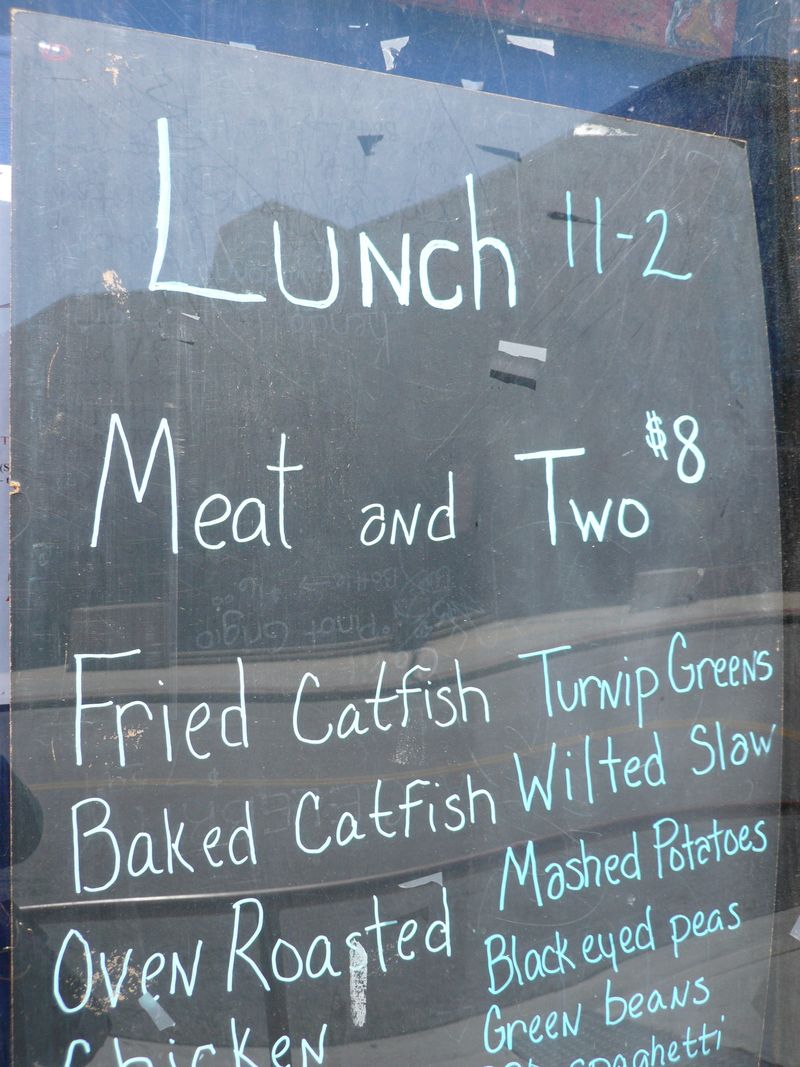 Lunch 11-2
Meat and Two $8
Fried Catfish
Baked Catfish
Oven Roasted
Chicken
Turnip Greens
Wilted Slaw
Mashed Potatoes
Black eyed peas
Green beans
spaghetti